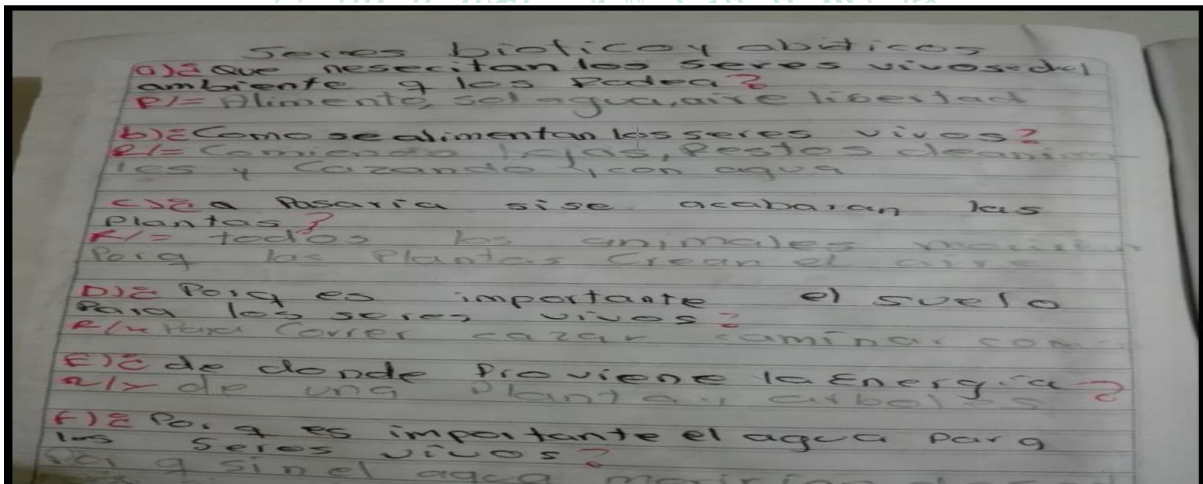 Seres bioticos y abioticos
a)¿ Que nesecitan los seres vivos del
ambiente q los Rodea?
R/= Alimento, sol agua, aire libertad
b)¿ Como se alimentan los seres vivos?
R/= Comiendo hojas, Restos de anima
les y cazando, con agua
c)¿ q Pasaria si se acabaran las
Plantas?
R/= todos los animales moririan
Porq las Plantas Crean el aire
D)¿ Porq es importante el suelo
Para los seres vivos?
R/= Para Correr cazar caminar com
E)¿ de donde Proviene la Energia?
R/= de una Planta, arboles
F)¿ Porq es importante el agua para
los Seres vivos?
Porq sin el agua moririan